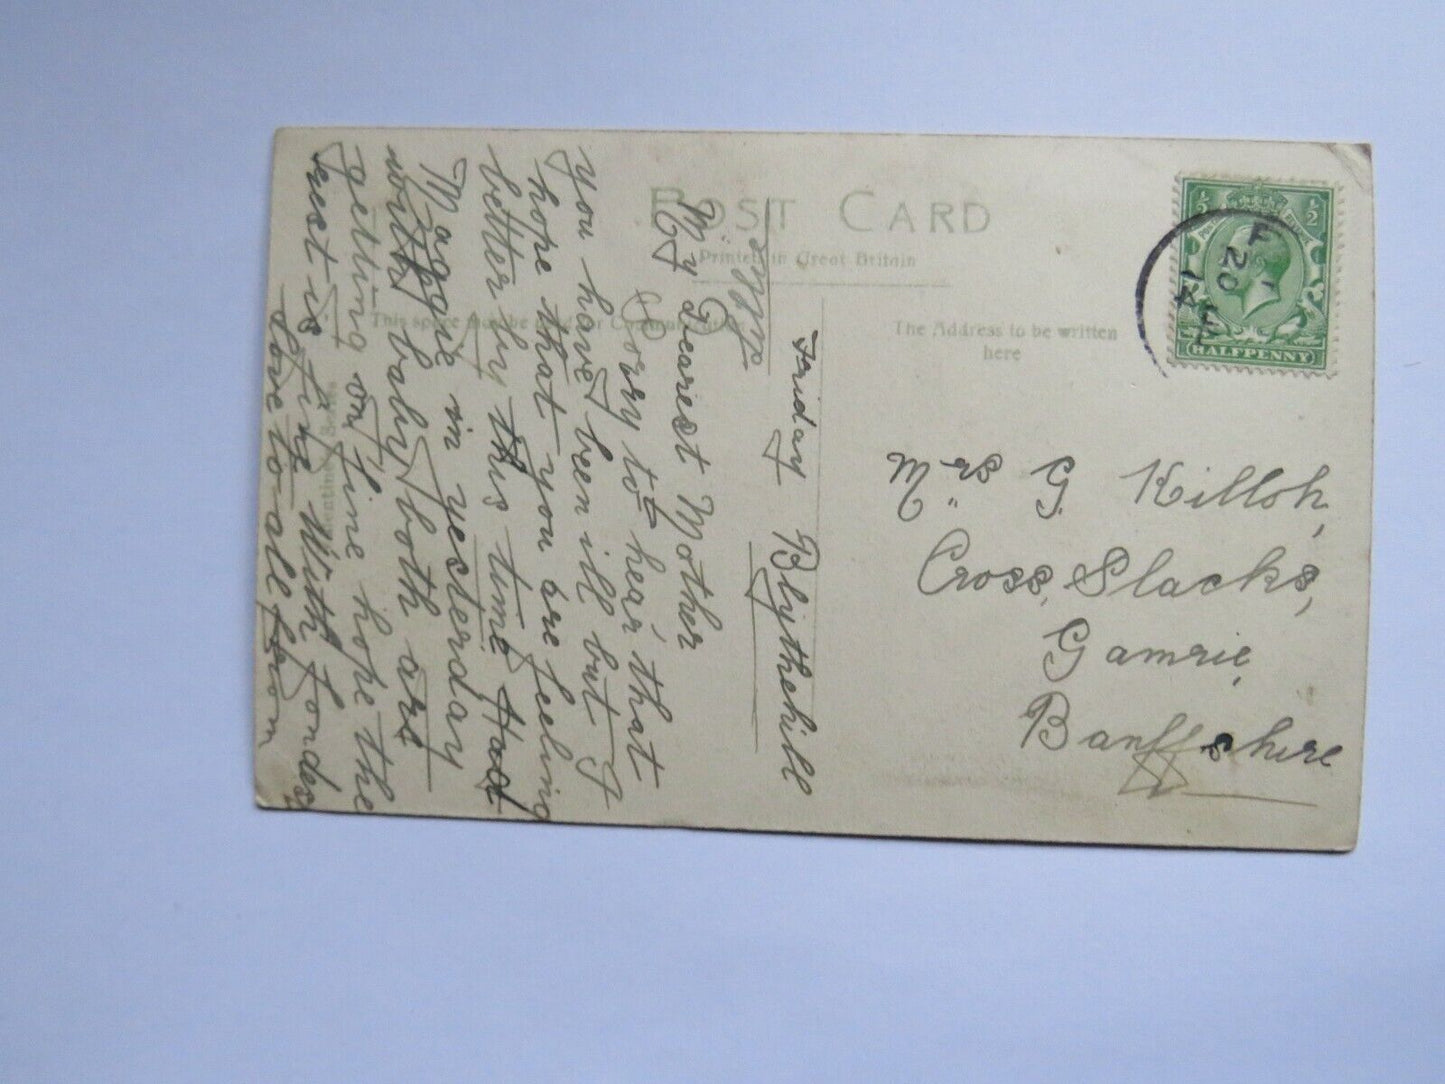 POST CARD
Printed in Great Britain
This space may be used for Communication
The Address to be written
here
HALFPENNY
Mrs G. Killoh,
Cross, Slacks,
Gamrie,
Banffshire
Blythehill
Friday
My Dearest Mother
Sorry to hear that
you have been ill but I
hope that you are feeling
better by this time Had
Maggie in yesterday
with baby both are
getting on fine hope the
rest is fine With Fondest
love to all from